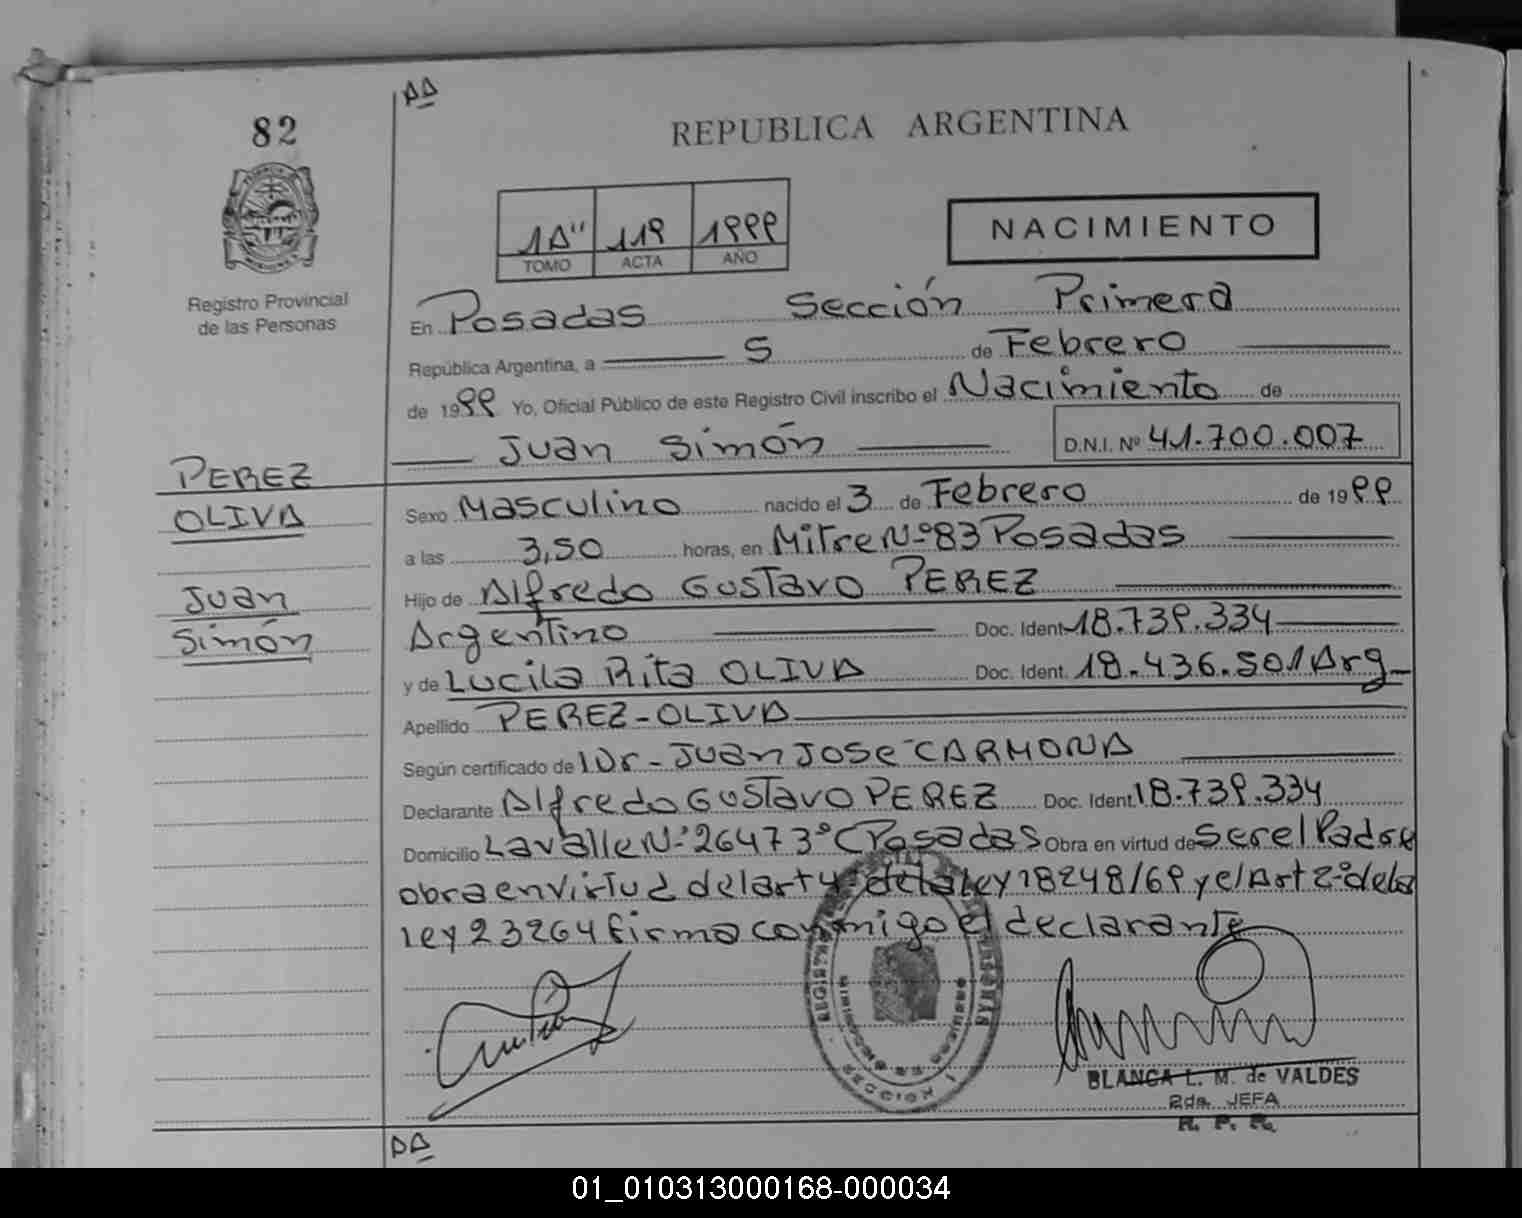 AA
82
REPUBLICA ARGENTINA
1A" 119 1999
TOMO ACTA AÑO
NACIMIENTO
Registro Provincial
de las Personas
En Posadas Sección Primera
República Argentina, a 5 de Febrero
de 1999 Yo, Oficial Público de este Registro Civil inscribo el Nacimiento de
Juan Simón D.N.I. Nº 41.700.007
PEREZ
OLIVA
Juan
Simón
Sexo Masculino nacido el 3 de Febrero de 1999
a las 3,50 horas, en Mitre Nº 83 Posadas
Hijo de Alfredo Gustavo PEREZ
Argentino Doc. Ident. 18.739.334
y de Lucila Rita OLIVA Doc. Ident. 18.436.501 Arg
Apellido PEREZ-OLIVA
Según certificado de Dr- Juan Jose CARMONA
Declarante Alfredo Gustavo PEREZ Doc. Ident. 18.739.334
Domicilio Lavalle Nº 2647 3º C Posadas Obra en virtud de Ser el Padre y
obra en virtud del art 4º de la ley 18248/69 y el Art 2º de la
ley 23264 firma conmigo el declarante
SECCION 1
BLANCA L. M. de VALDES
2da. JEFA
R. P. P.
AA
01_010313000168-000034